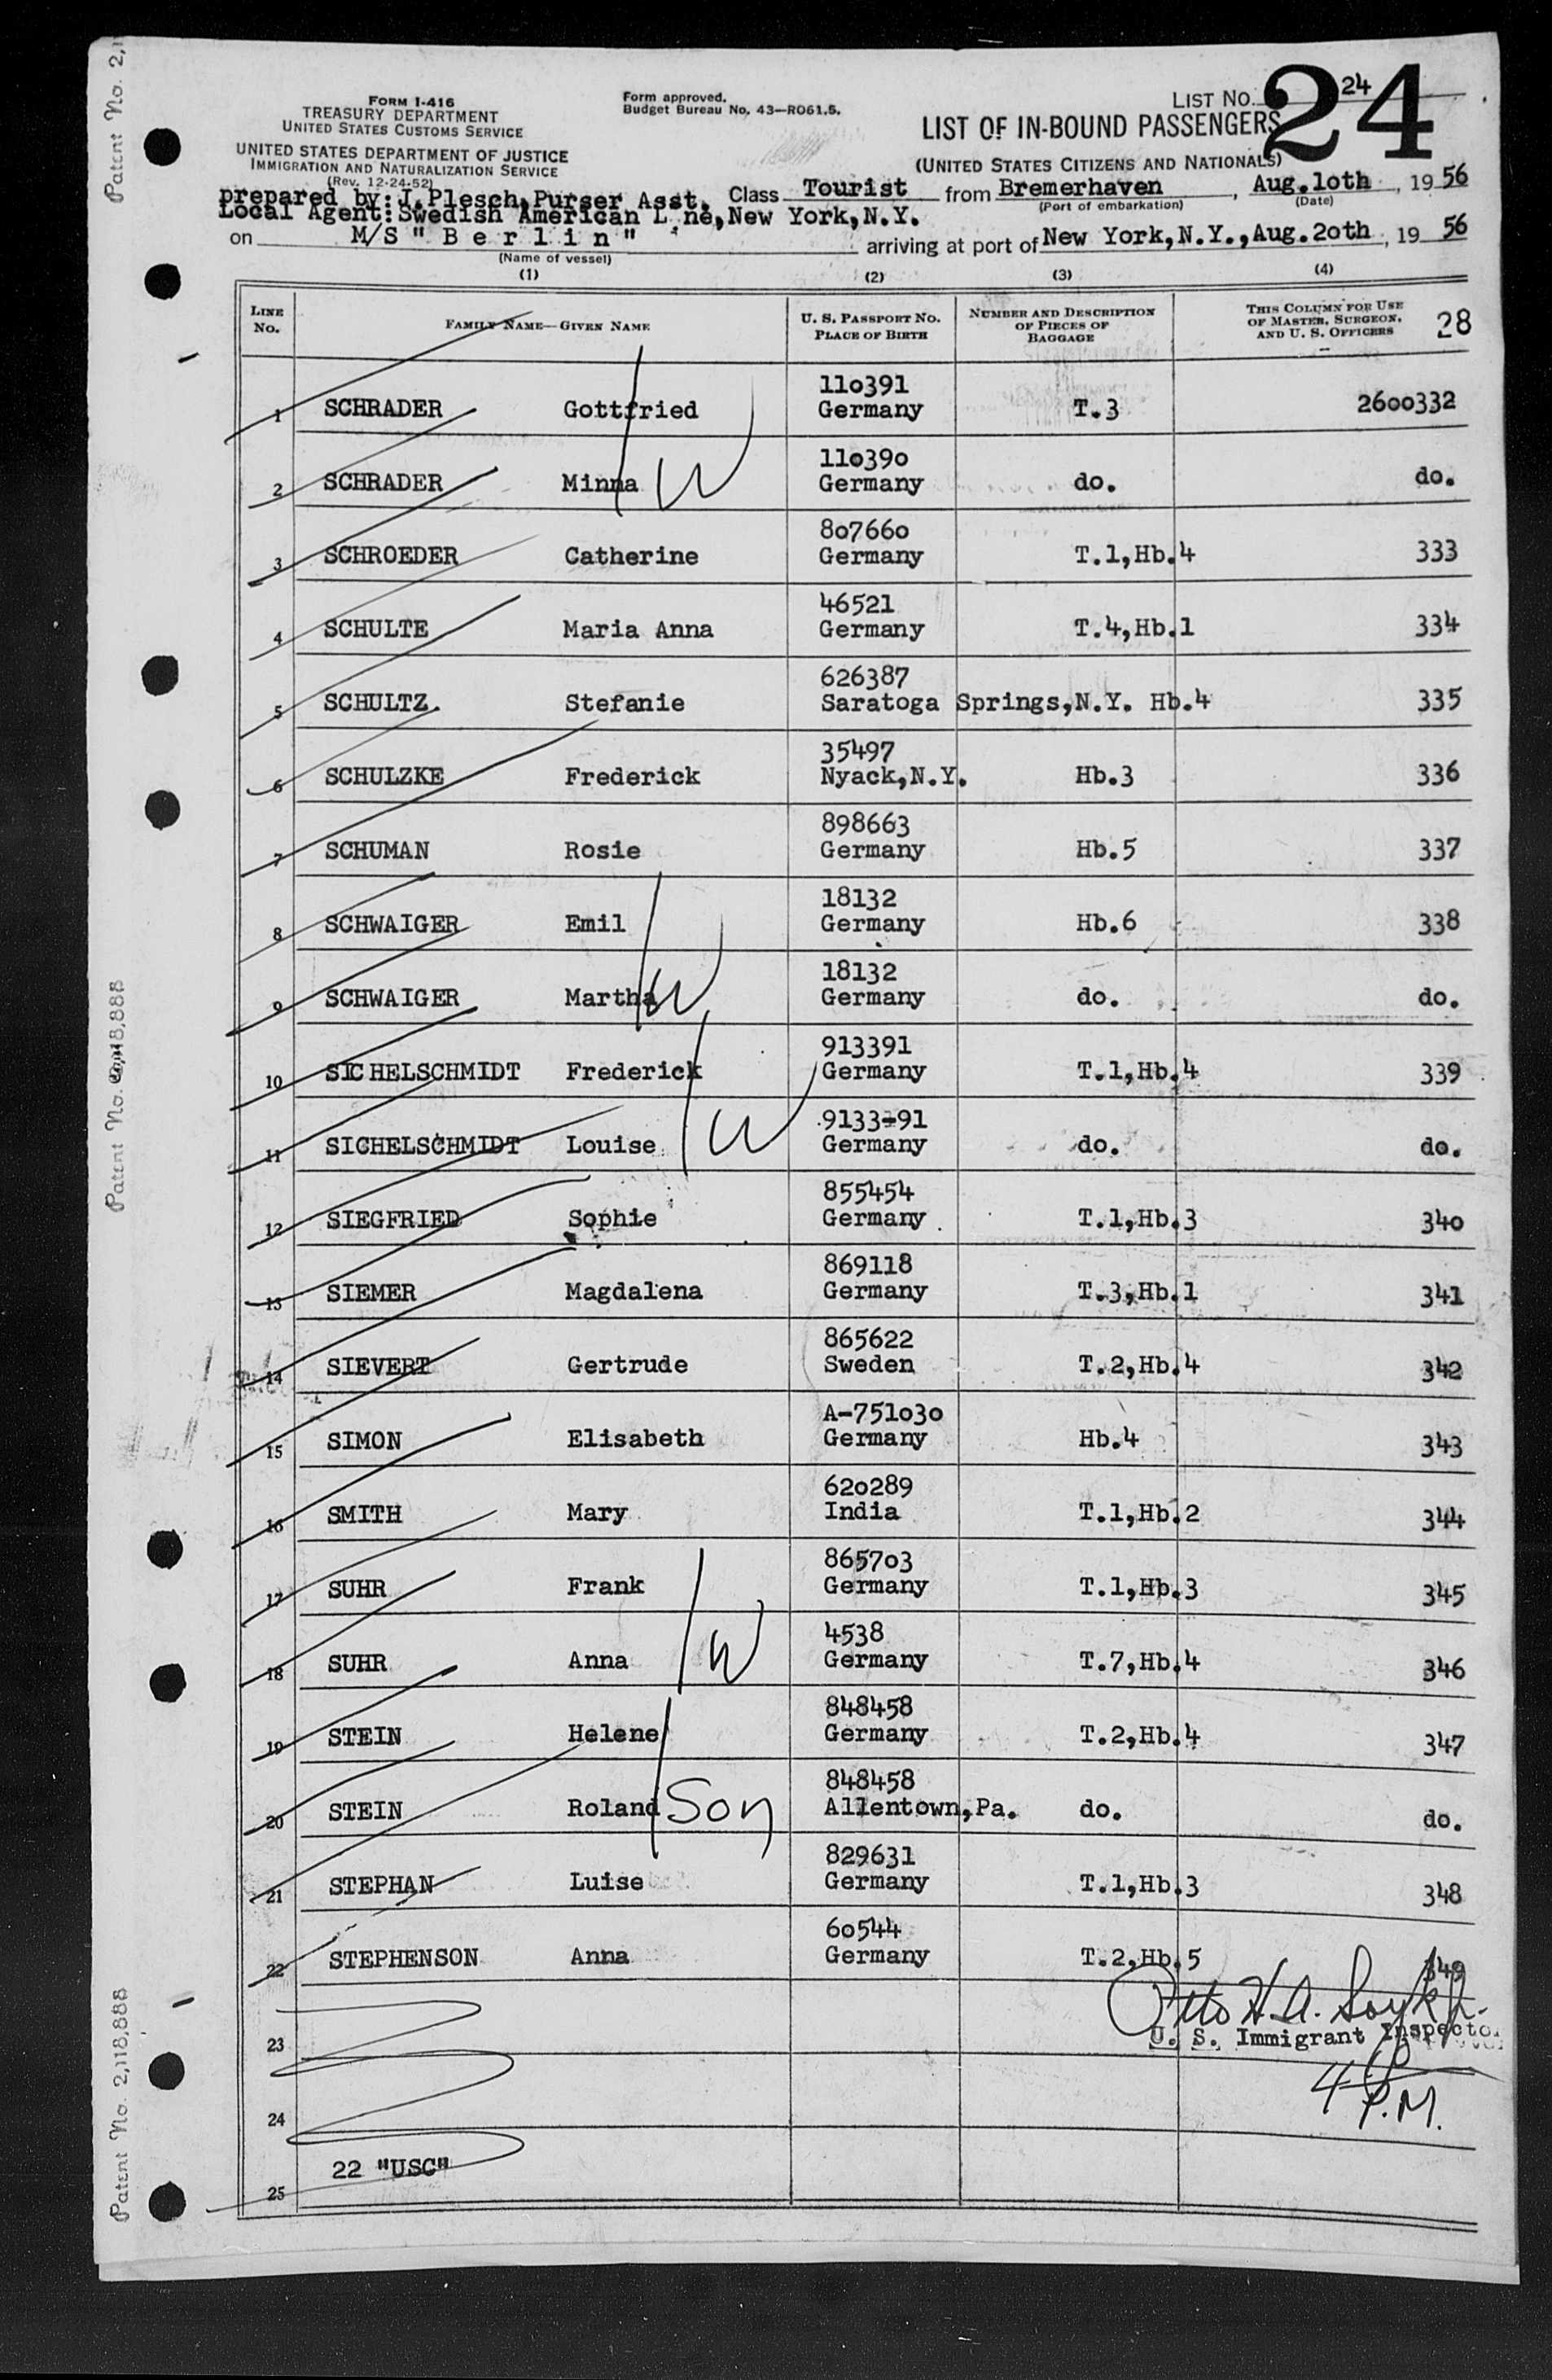 FORM I-416
TREASURY DEPARTMENT
UNITED STATES CUSTOMS SERVICE
UNITED STATES DEPARTMENT OF JUSTICE
IMMIGRATION AND NATURALIZATION SERVICE
(Rev. 12-24-52)
Form approved.
Budget Bureau No. 43—RO61.5.
LIST NO. 24
24
LIST OF IN-BOUND PASSENGERS
(UNITED STATES CITIZENS AND NATIONALS)
prepared by: J.Plesch,Purser Asst. Class Tourist from Bremerhaven, Aug.1oth, 19 56
(Port of embarkation) (Date)
Local Agent:Swedish American L ne,New York,N.Y.
on M/S " B e r l i n " arriving at port of New York,N.Y.,Aug.2oth, 19 56
(Name of vessel)
(1) (2) (3) (4)
LINE NO. FAMILY NAME—GIVEN NAME U. S. PASSPORT NO. PLACE OF BIRTH NUMBER AND DESCRIPTION OF PIECES OF BAGGAGE THIS COLUMN FOR USE OF MASTER, SURGEON, AND U. S. OFFICERS 28
110391
1 SCHRADER Gottfried Germany T.3 2600332
110390
2 SCHRADER Minna W Germany do. do.
807660
3 SCHROEDER Catherine Germany T.1,Hb.4 333
46521
4 SCHULTE Maria Anna Germany T.4,Hb.1 334
626387
5 SCHULTZ. Stefanie Saratoga Springs,N.Y. Hb.4 335
35497
6 SCHULZKE Frederick Nyack,N.Y. Hb.3 336
898663
7 SCHUMAN Rosie Germany Hb.5 337
18132
8 SCHWAIGER Emil Germany Hb.6 338
18132
9 SCHWAIGER Martha W Germany do. do.
913391
10 SICHELSCHMIDT Frederick Germany T.1,Hb.4 339
9133-91
11 SICHELSCHMIDT Louise W Germany do. do.
855454
12 SIEGFRIED Sophie Germany T.1,Hb.3 340
869118
13 SIEMER Magdalena Germany T.3,Hb.1 341
865622
14 SIEVERT Gertrude Sweden T.2,Hb.4 342
A-751030
15 SIMON Elisabeth Germany Hb.4 343
620289
16 SMITH Mary India T.1,Hb.2 344
865703
17 SUHR Frank Germany T.1,Hb.3 345
4538
18 SUHR Anna W Germany T.7,Hb.4 346
848458
19 STEIN Helene Germany T.2,Hb.4 347
848458
20 STEIN Roland Son Allentown,Pa. do. do.
829631
21 STEPHAN Luise Germany T.1,Hb.3 348
60544
22 STEPHENSON Anna Germany T.2,Hb.5 349
Otto H. A.
U. S. Immigrant Inspector
23
4 P.M.
24
22 "USC"
25
Patent No. 2,1
Patent No.
Patent No. 2,118,888